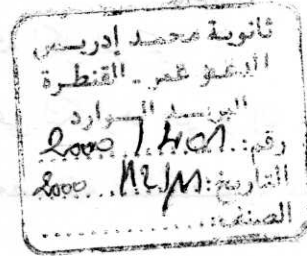 ثانوية محمد إدريس
المدعو عمر - القنطرة
البريد الوارد
رقم: 2000 /
التاريخ: 2000
الصنف: